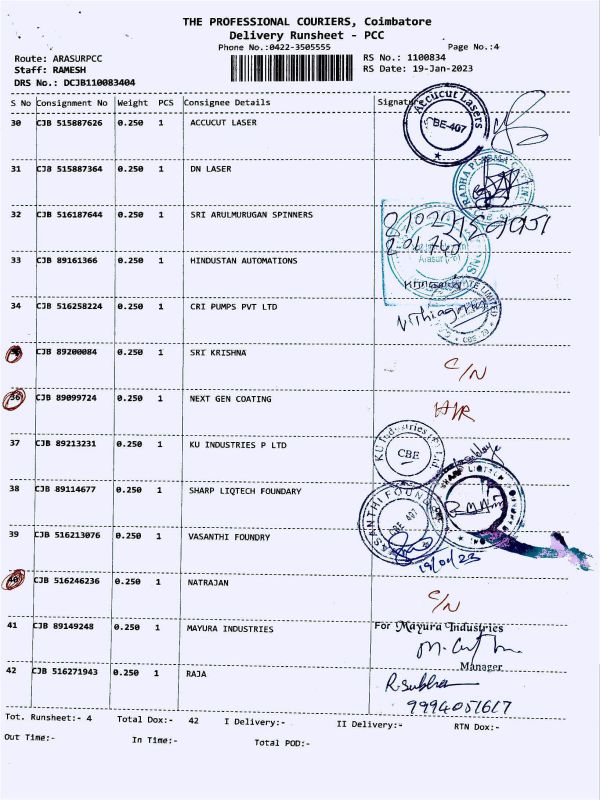 THE PROFESSIONAL COURIERS, Coimbatore
Delivery Runsheet - PCC
Phone No.:0422-3505555
Page No.:4
Route: ARASURPCC
RS No.: 1100834
Staff: RAMESH
RS Date: 19-Jan-2023
DRS No.: DCJB110083404
S No Consignment No Weight PCS Consignee Details Signature
30 CJB 515887626 0.250 1 ACCUCUT LASER
Accucut Lasers
CBE-407
31 CJB 515887364 0.250 1 DN LASER
RADHA PLASMA CUTTING
32 CJB 516187644 0.250 1 SRI ARULMURUGAN SPINNERS
33 CJB 89161366 0.250 1 HINDUSTAN AUTOMATIONS
Arasur
34 CJB 516258224 0.250 1 CRI PUMPS PVT LTD
35 CJB 89200084 0.250 1 SRI KRISHNA C/N
36 CJB 89099724 0.250 1 NEXT GEN COATING
37 CJB 89213231 0.250 1 KU INDUSTRIES P LTD
KU Industries (P) Ltd.
CBE
38 CJB 89114677 0.250 1 SHARP LIQTECH FOUNDARY
SHARP LIQTECH
39 CJB 516213076 0.250 1 VASANTHI FOUNDRY
VASANTHI FOUNDRY
CBE 407
19/01/23
40 CJB 516246236 0.250 1 NATRAJAN C/N
41 CJB 89149248 0.250 1 MAYURA INDUSTRIES
For Mayura Industries
Manager
42 CJB 516271943 0.250 1 RAJA
9994051617
Tot. Runsheet:- 4 Total Dox:- 42 I Delivery:- II Delivery:- RTN Dox:-
Out Time:- In Time:- Total POD:-